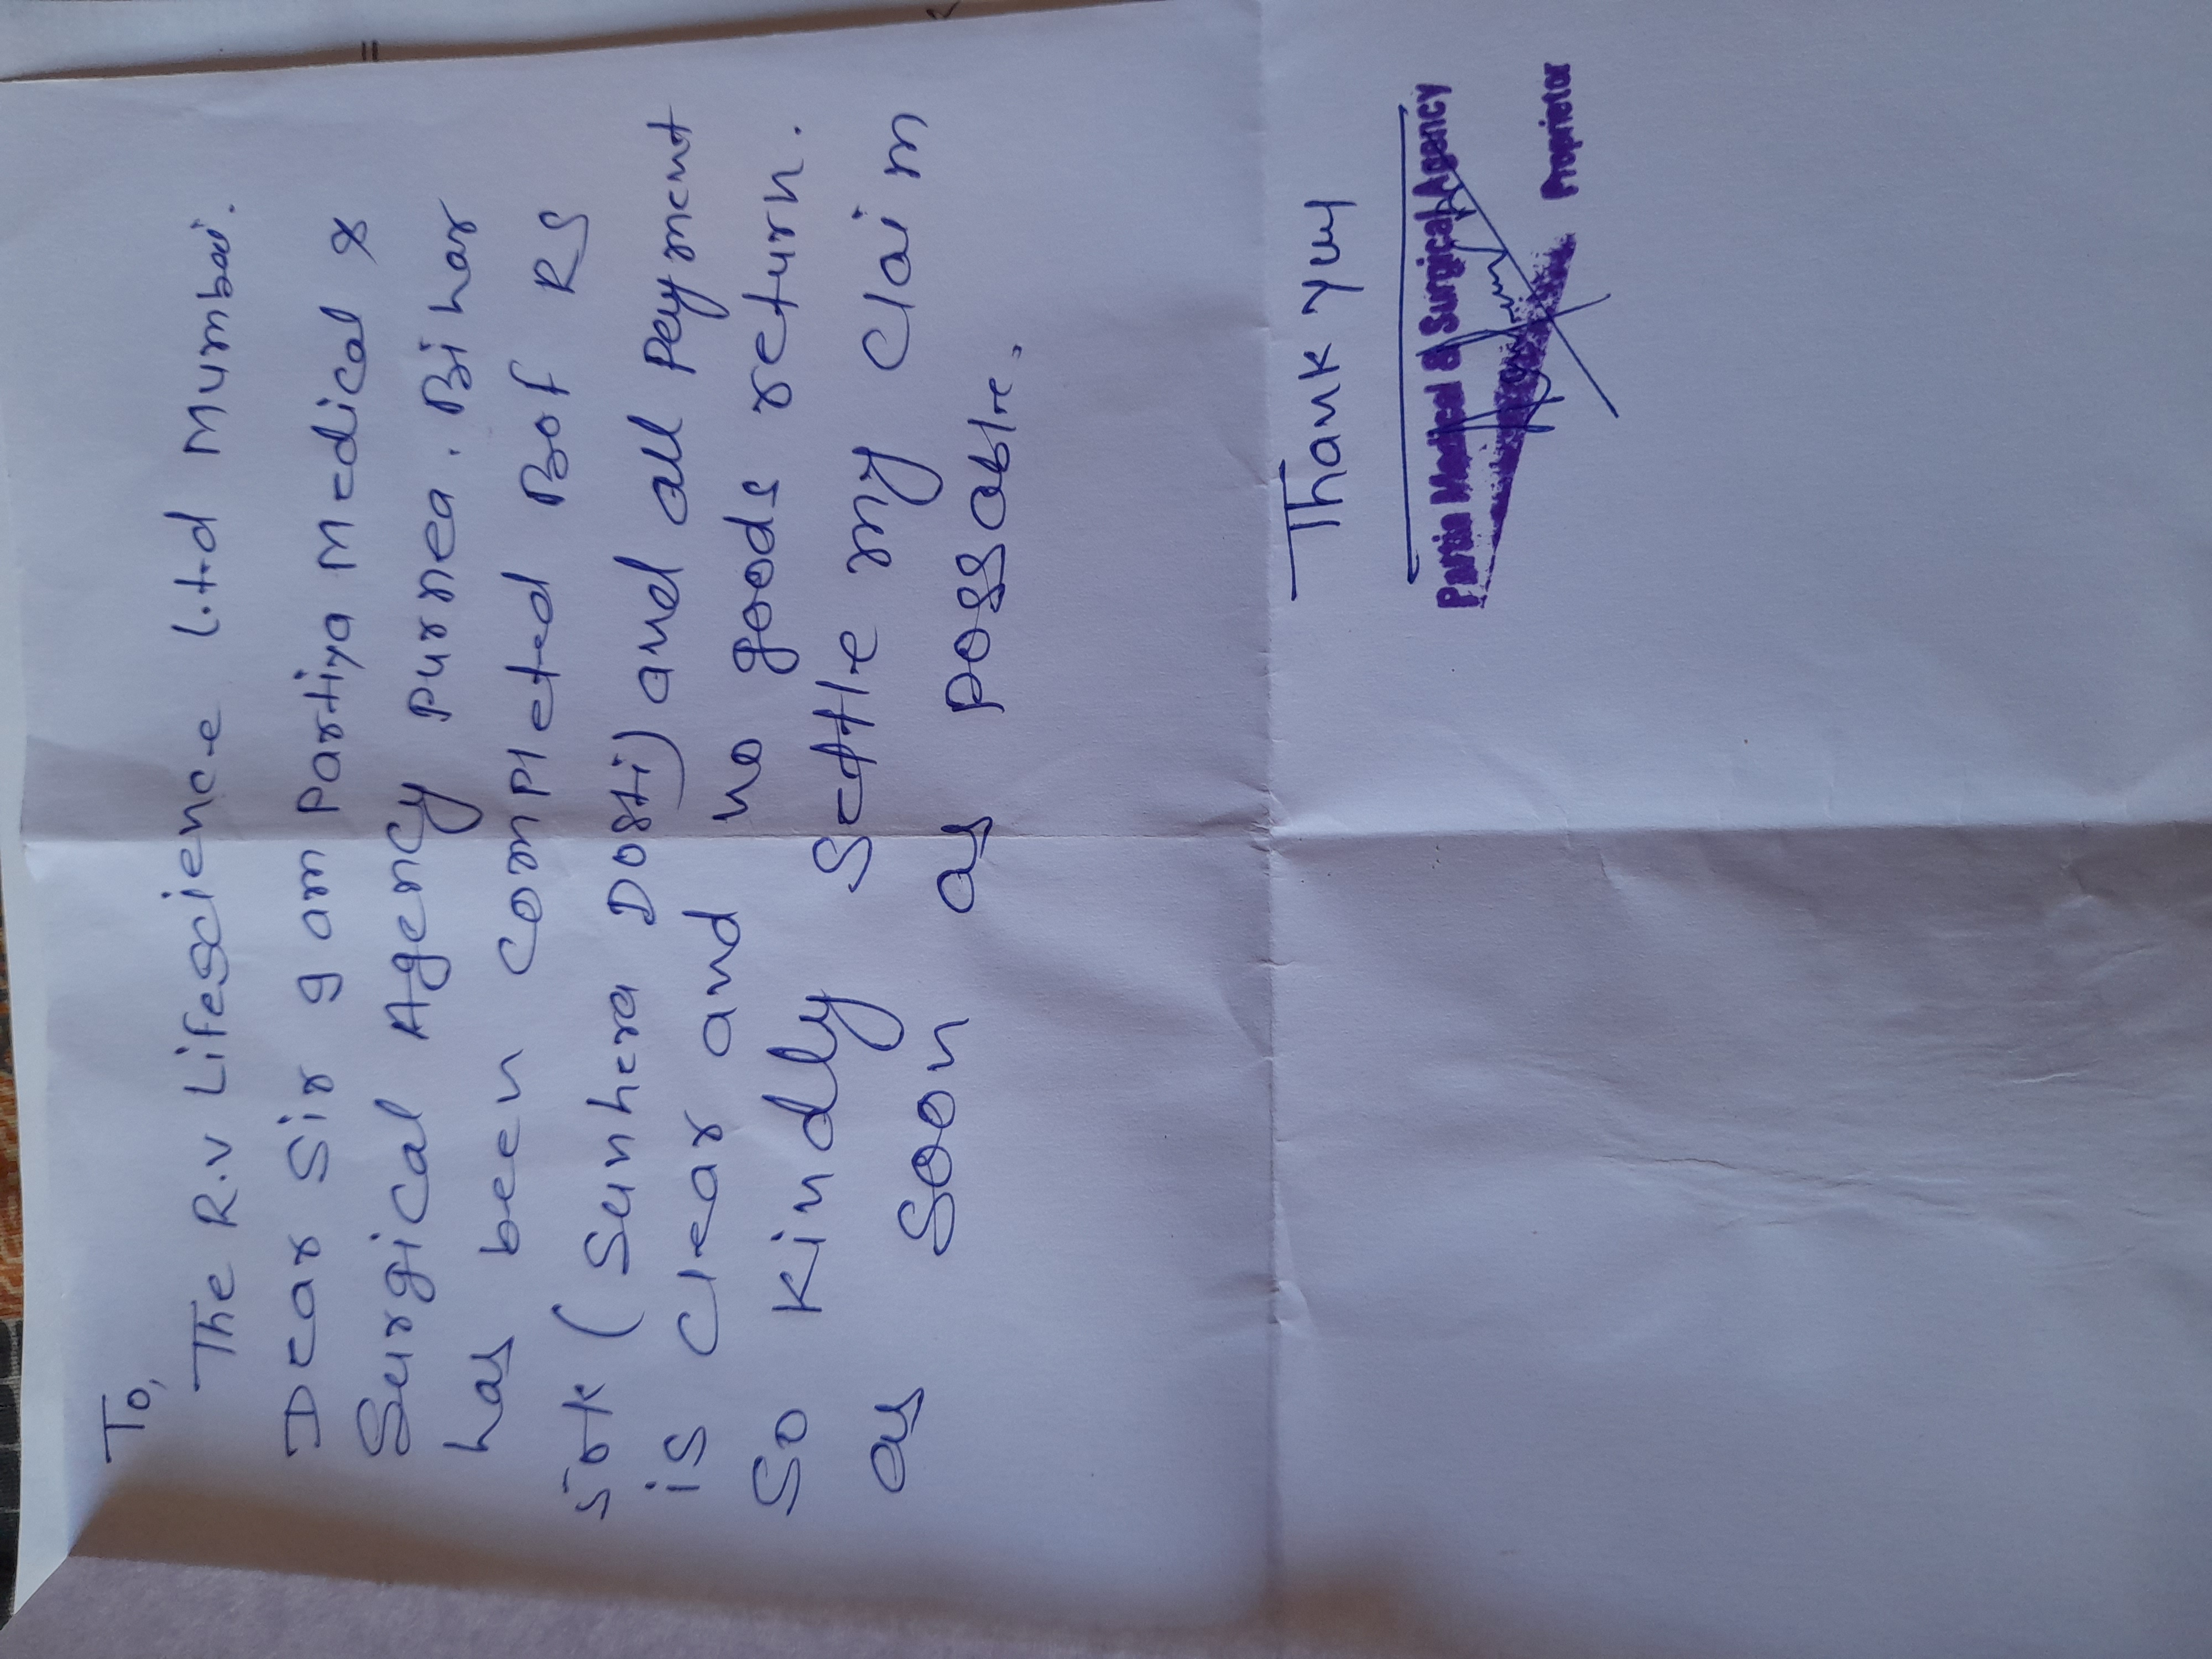 To,
The R.V Lifescience Ltd Mumbai.
Dear Sir I am Partiya Medical &
Surgical Agency Purnea. Bihar
has been Completed Bof RS
5 (Sunhera Dosti) and all Peyment
is Clear and no goods return.
So Kindly Settle my Claim
as Soon as possable.
Thank you
Partia Medical & Surgical Agency
Proprietor